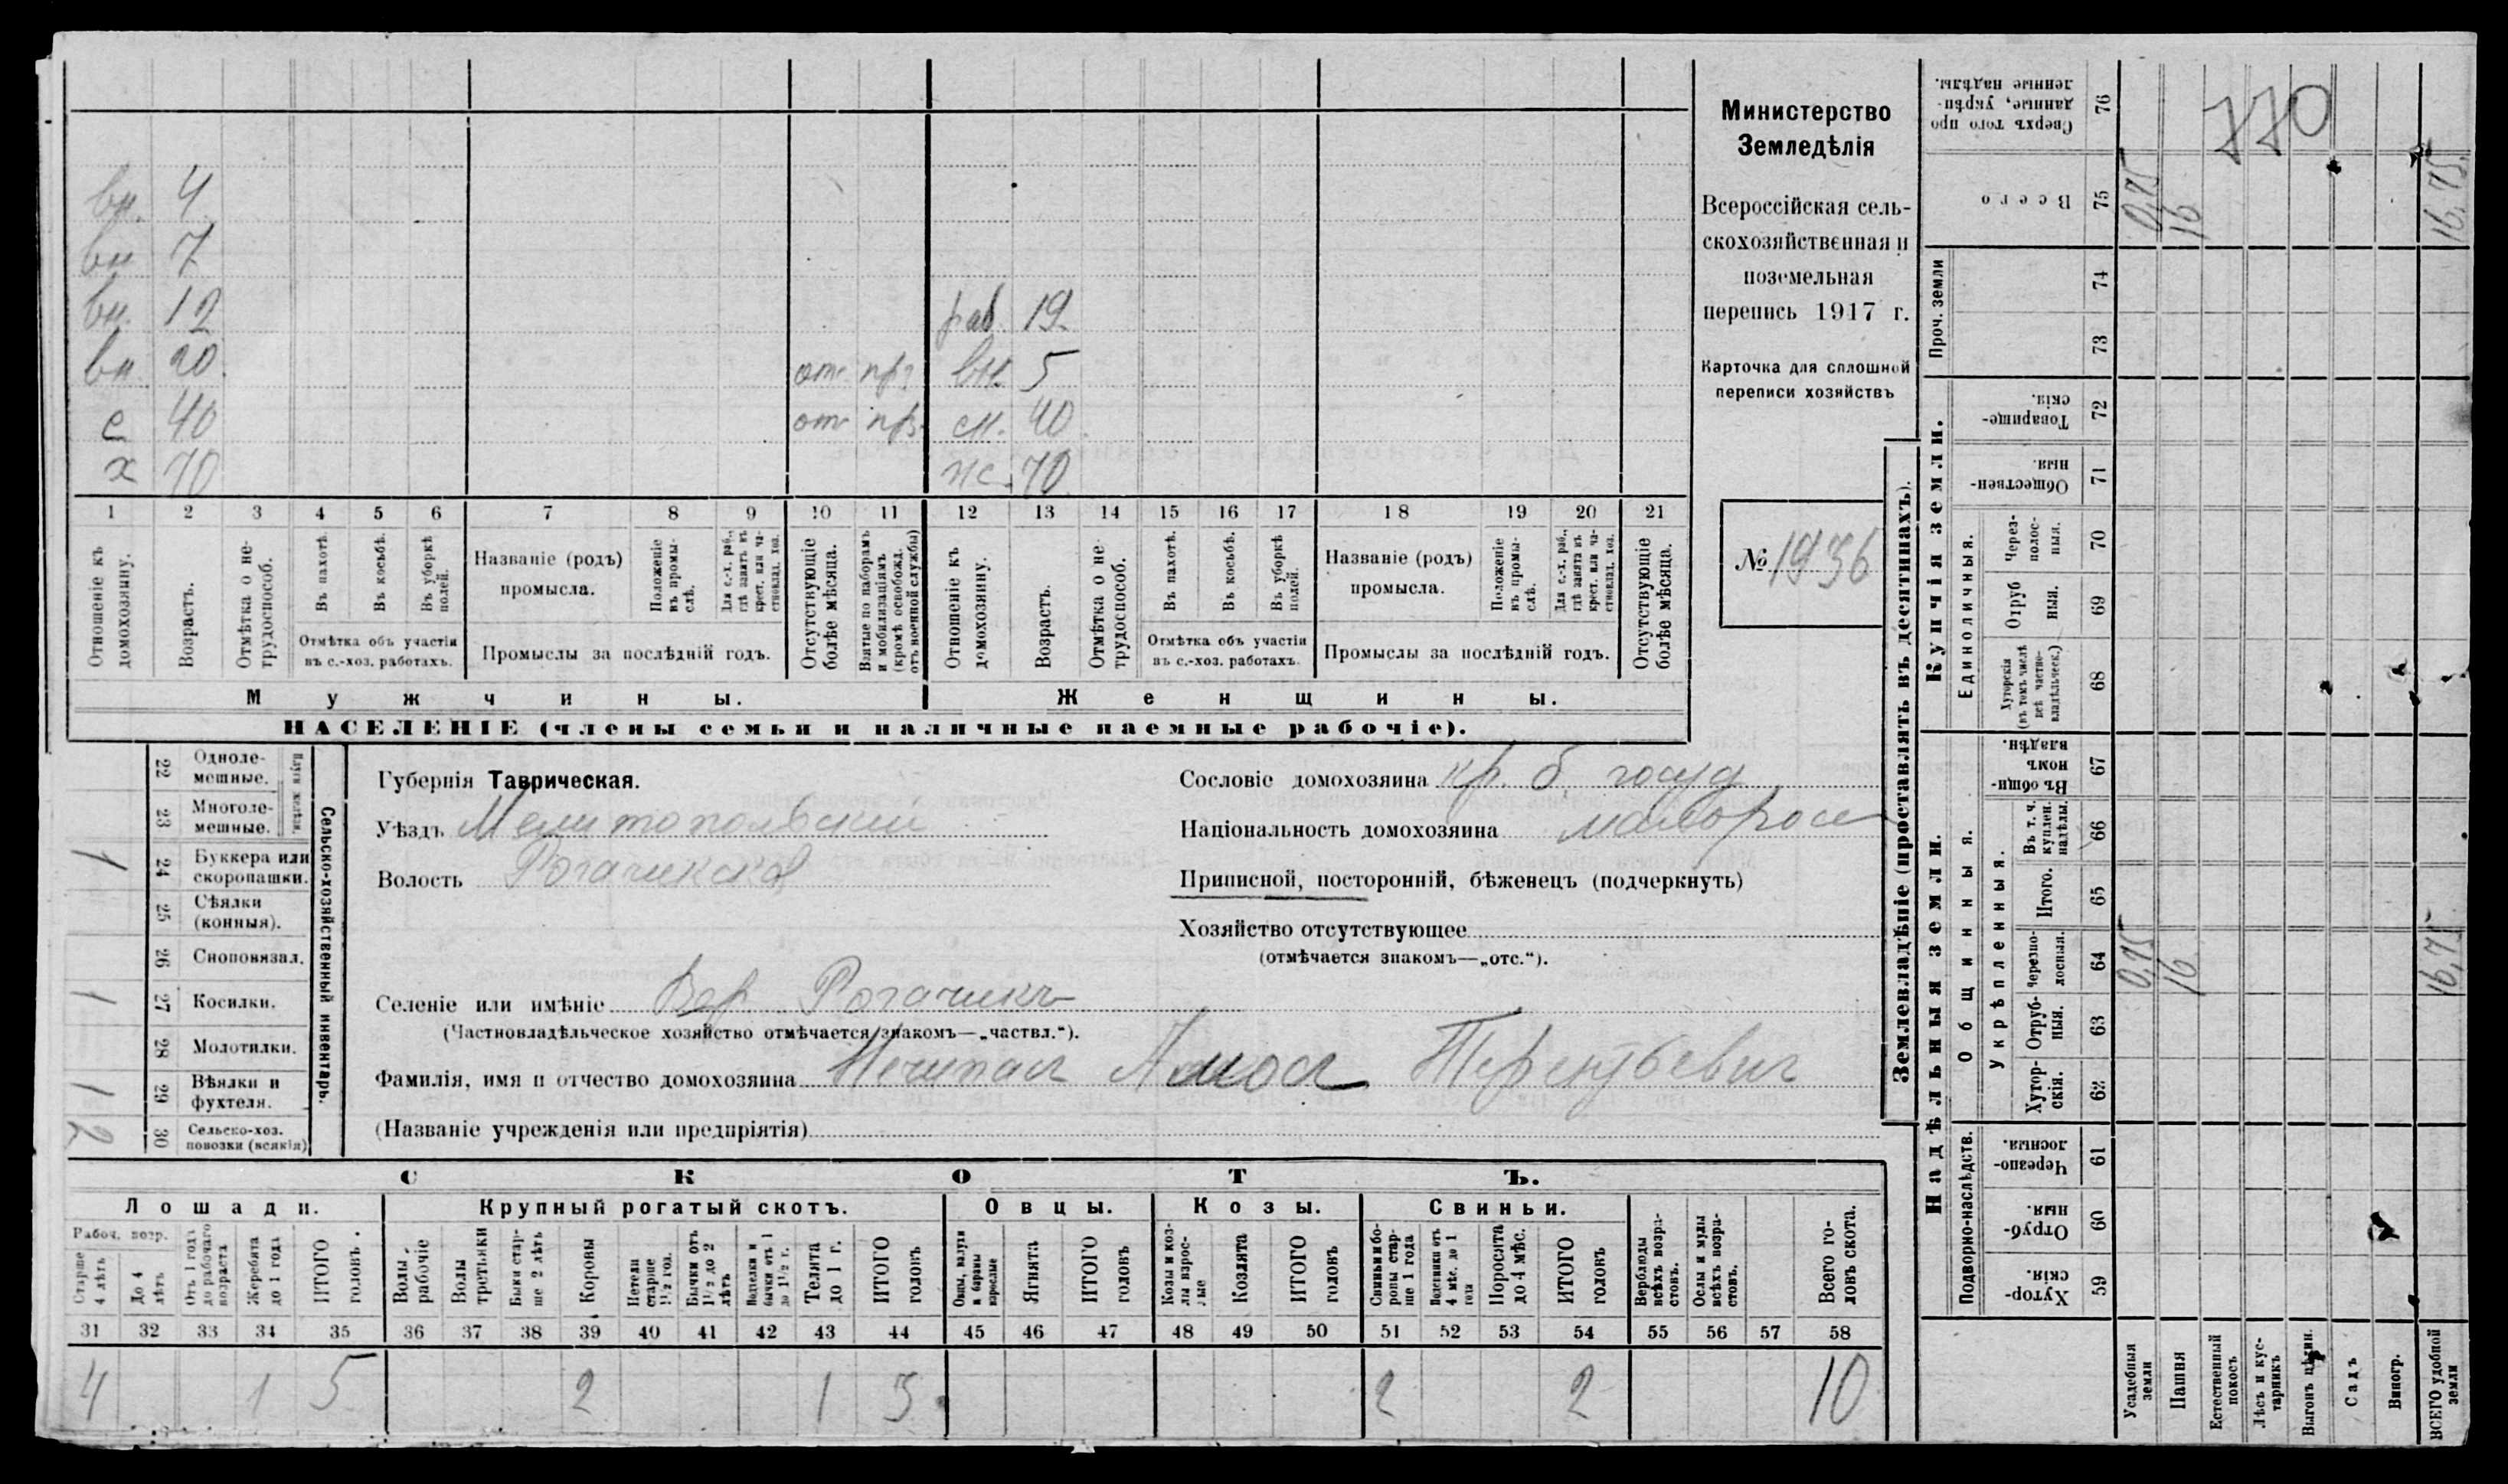 вн. 4
вн 7
вн. 12 раб. 19.
вн. 20. от пр. вн. 5
с 40 от пр. сн. 40
х 70 ж. 70
1 2 3 4 5 6 7 8 9 10 11 12 13 14 15 16 17 18 19 20 21
Отношеніе къ домохозяину.
Возрастъ.
Отмѣтка о нетрудоспособ.
Въ пахотѣ.
Въ косьбѣ.
Въ уборкѣ полей.
Отмѣтка объ участіи
въ с.-хоз. работахъ.
Названіе (родъ)
промысла.
Положеніе въ промыслѣ.
Для с.-х. раб., гдѣ занятъ въ крест. или частновлад. хоз.
Промыслы за послѣдній годъ.
Отсутствующіе болѣе мѣсяца.
Взятые по наборамъ и мобилизаціямъ (кромѣ освобожд. отъ военной службы)
Отношеніе къ домохозяину.
Возрастъ.
Отмѣтка о нетрудоспособ.
Въ пахотѣ.
Въ косьбѣ.
Въ уборкѣ полей.
Отмѣтка объ участіи
въ с.-хоз. работахъ.
Названіе (родъ)
промысла.
Положеніе въ промыслѣ.
Для с.-х. раб., гдѣ занята въ крест. или частновлад. хоз.
Промыслы за послѣдній годъ.
Отсутствующіе болѣе мѣсяца.
Мужчины. Женщины.
НАСЕЛЕНІЕ (члены семьи и наличные наемные рабочіе).
Министерство
Земледѣлія
Всероссійская сель-
скохозяйственная и
поземельная
перепись 1917 г.
Карточка для сплошной
переписи хозяйствъ
№ 1936
Сельско-хозяйственный инвентарь.
Плуги желѣзн.
22 Одноле-
мешные.
23 Многоле-
мешные.
1 24 Буккера или
скоропашки.
25 Сѣялки
(конныя).
26 Сноповязал.
1 27 Косилки.
28 Молотилки.
1 29 Вѣялки и
фухтеля.
2 30 Сельско-хоз.
повозки (всякія)
Губернія Таврическая.
Уѣздъ Мелитопольский
Волость Рогачикская
Селеніе или имѣніе Вер Рогачикъ
(Частновладѣльческое хозяйство отмѣчается знакомъ—„частвл.“).
Фамилія, имя и отчество домохозяина Нечипас Амос Терентьевич
(Названіе учрежденія или предпріятія)
Сословіе домохозяина кр. б. госуд
Національность домохозяина малорос
Приписной, посторонній, бѣженецъ (подчеркнуть)
Хозяйство отсутствующее
(отмѣчается знакомъ—„отс.“).
СКОТЪ.
Лошади. Крупный рогатый скотъ. Овцы. Козы. Свиньи.
Рабоч. возр.
Старше 4 лѣтъ
До 4 лѣтъ
Отъ 1 года до рабочаго возраста
Жеребята до 1 года
ИТОГО головъ.
Волы рабочіе
Волы третьяки
Быки старше 2 лѣтъ
Коровы
Нетели старше 1½ год.
Бычки отъ 1½ до 2 лѣтъ
Подтелки и бычки отъ 1 до 1½ г.
Телята до 1 г.
ИТОГО головъ
Овцы, валухи и бараны взрослые
Ягнята
ИТОГО головъ
Козы и козлы взрослые
Козлята
ИТОГО головъ
Свиньи и боровы старше 1 года
Подсвинки отъ 4 мѣс. до 1 года
Поросята до 4 мѣс.
ИТОГО головъ
Верблюды всѣхъ возрастовъ.
Ослы и мулы всѣхъ возрастовъ.
Всего головъ скота.
31 32 33 34 35 36 37 38 39 40 41 42 43 44 45 46 47 48 49 50 51 52 53 54 55 56 57 58
4 1 5 2 1 3 2 2 10
Землевладѣніе (проставлять въ десятинахъ).
Надѣльныя земли.
Купчія земли.
Проч. земли
Подворно-наслѣдств.
Общинныя.
Укрѣпленныя.
Единоличныя.
Хуторскія. 59
Отрубныя. 60
Черезполосныя. 61
Хуторскія. 62
Отрубныя. 63
Черезполосныя. 64
Итого. 65
Въ т. ч. куплен. надѣлы. 66
Въ общинномъ владѣн. 67
Хуторскія (въ томъ числѣ всѣ частновладѣльческ.) 68
Отрубныя. 69
Черезполосныя. 70
Общественныя. 71
Товарищескія. 72
73
74
Всего 75
Сверхъ того проданные, укрѣпленные надѣлы. 76
Усадебныя земли 0,75 0,75
Пашня 16 16
Естественный покосъ
Лѣсъ и кустарникъ
Выгонъ цѣлин.
Садъ
Виногр.
ВСЕГО удобной земли 16,75 16,75
770